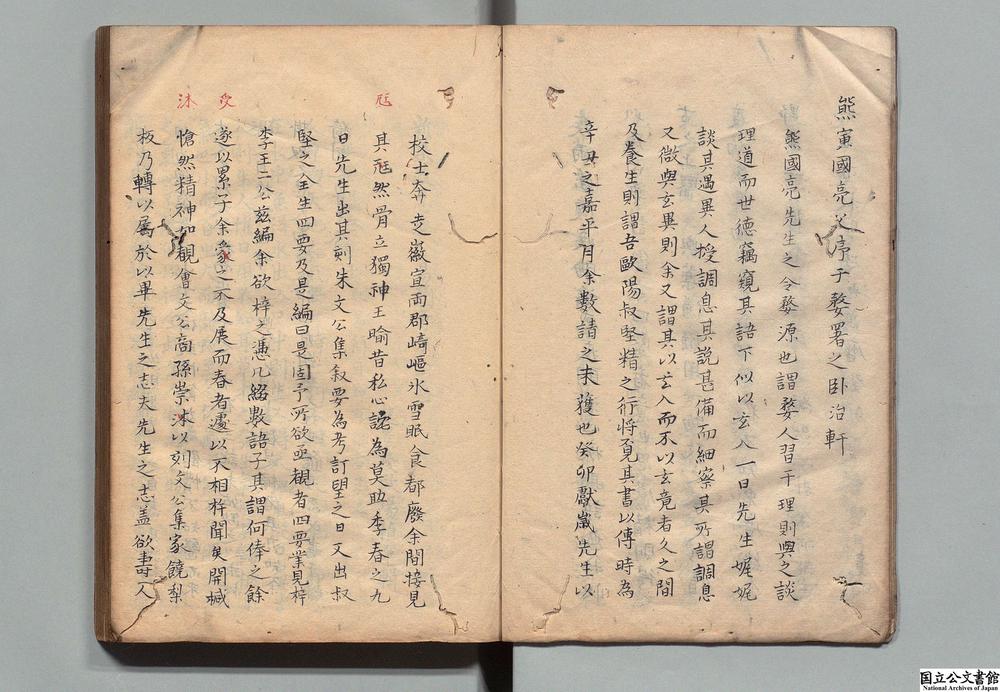 熊寅國亮父序于婺署之卧治軒
熊國亮先生之令婺源也謂婺人習于理則與之談
理道而世德竊窺其語下似以玄入一日先生娓娓
談其遇異人授調息其說甚備而細察其所謂調息
又微與玄異則余又謂其以玄入而不以玄竟者久之間
及養生則謂吾歐陽叔堅精之行將覓其書以傳時為
辛丑之嘉平月余數請之未獲也癸卯獻歲先生以
校士奔走徽宜兩郡崎嶇氷雪眠食都廢余間接見
其尫然骨立獨神王喻昔私心詫為莫助季春之九
日先生出其刻朱文公集敘要為考訂望之日又出叔
堅之全生四要及是編曰是固予所欲亟觀者四要業見梓
李王二公兹編余欲梓之慿几綴數語子其謂何俸之餘
遂以累子余受之不及展而春者遽以不相杵聞矣開椷
愴然精神如覿會文公裔孫崇沐以列文公集家饒梨
板乃轉以屬於以畢先生之志夫先生之志盖欲壽人
尫
受
沐
国立公文書館
National Archives of Japan